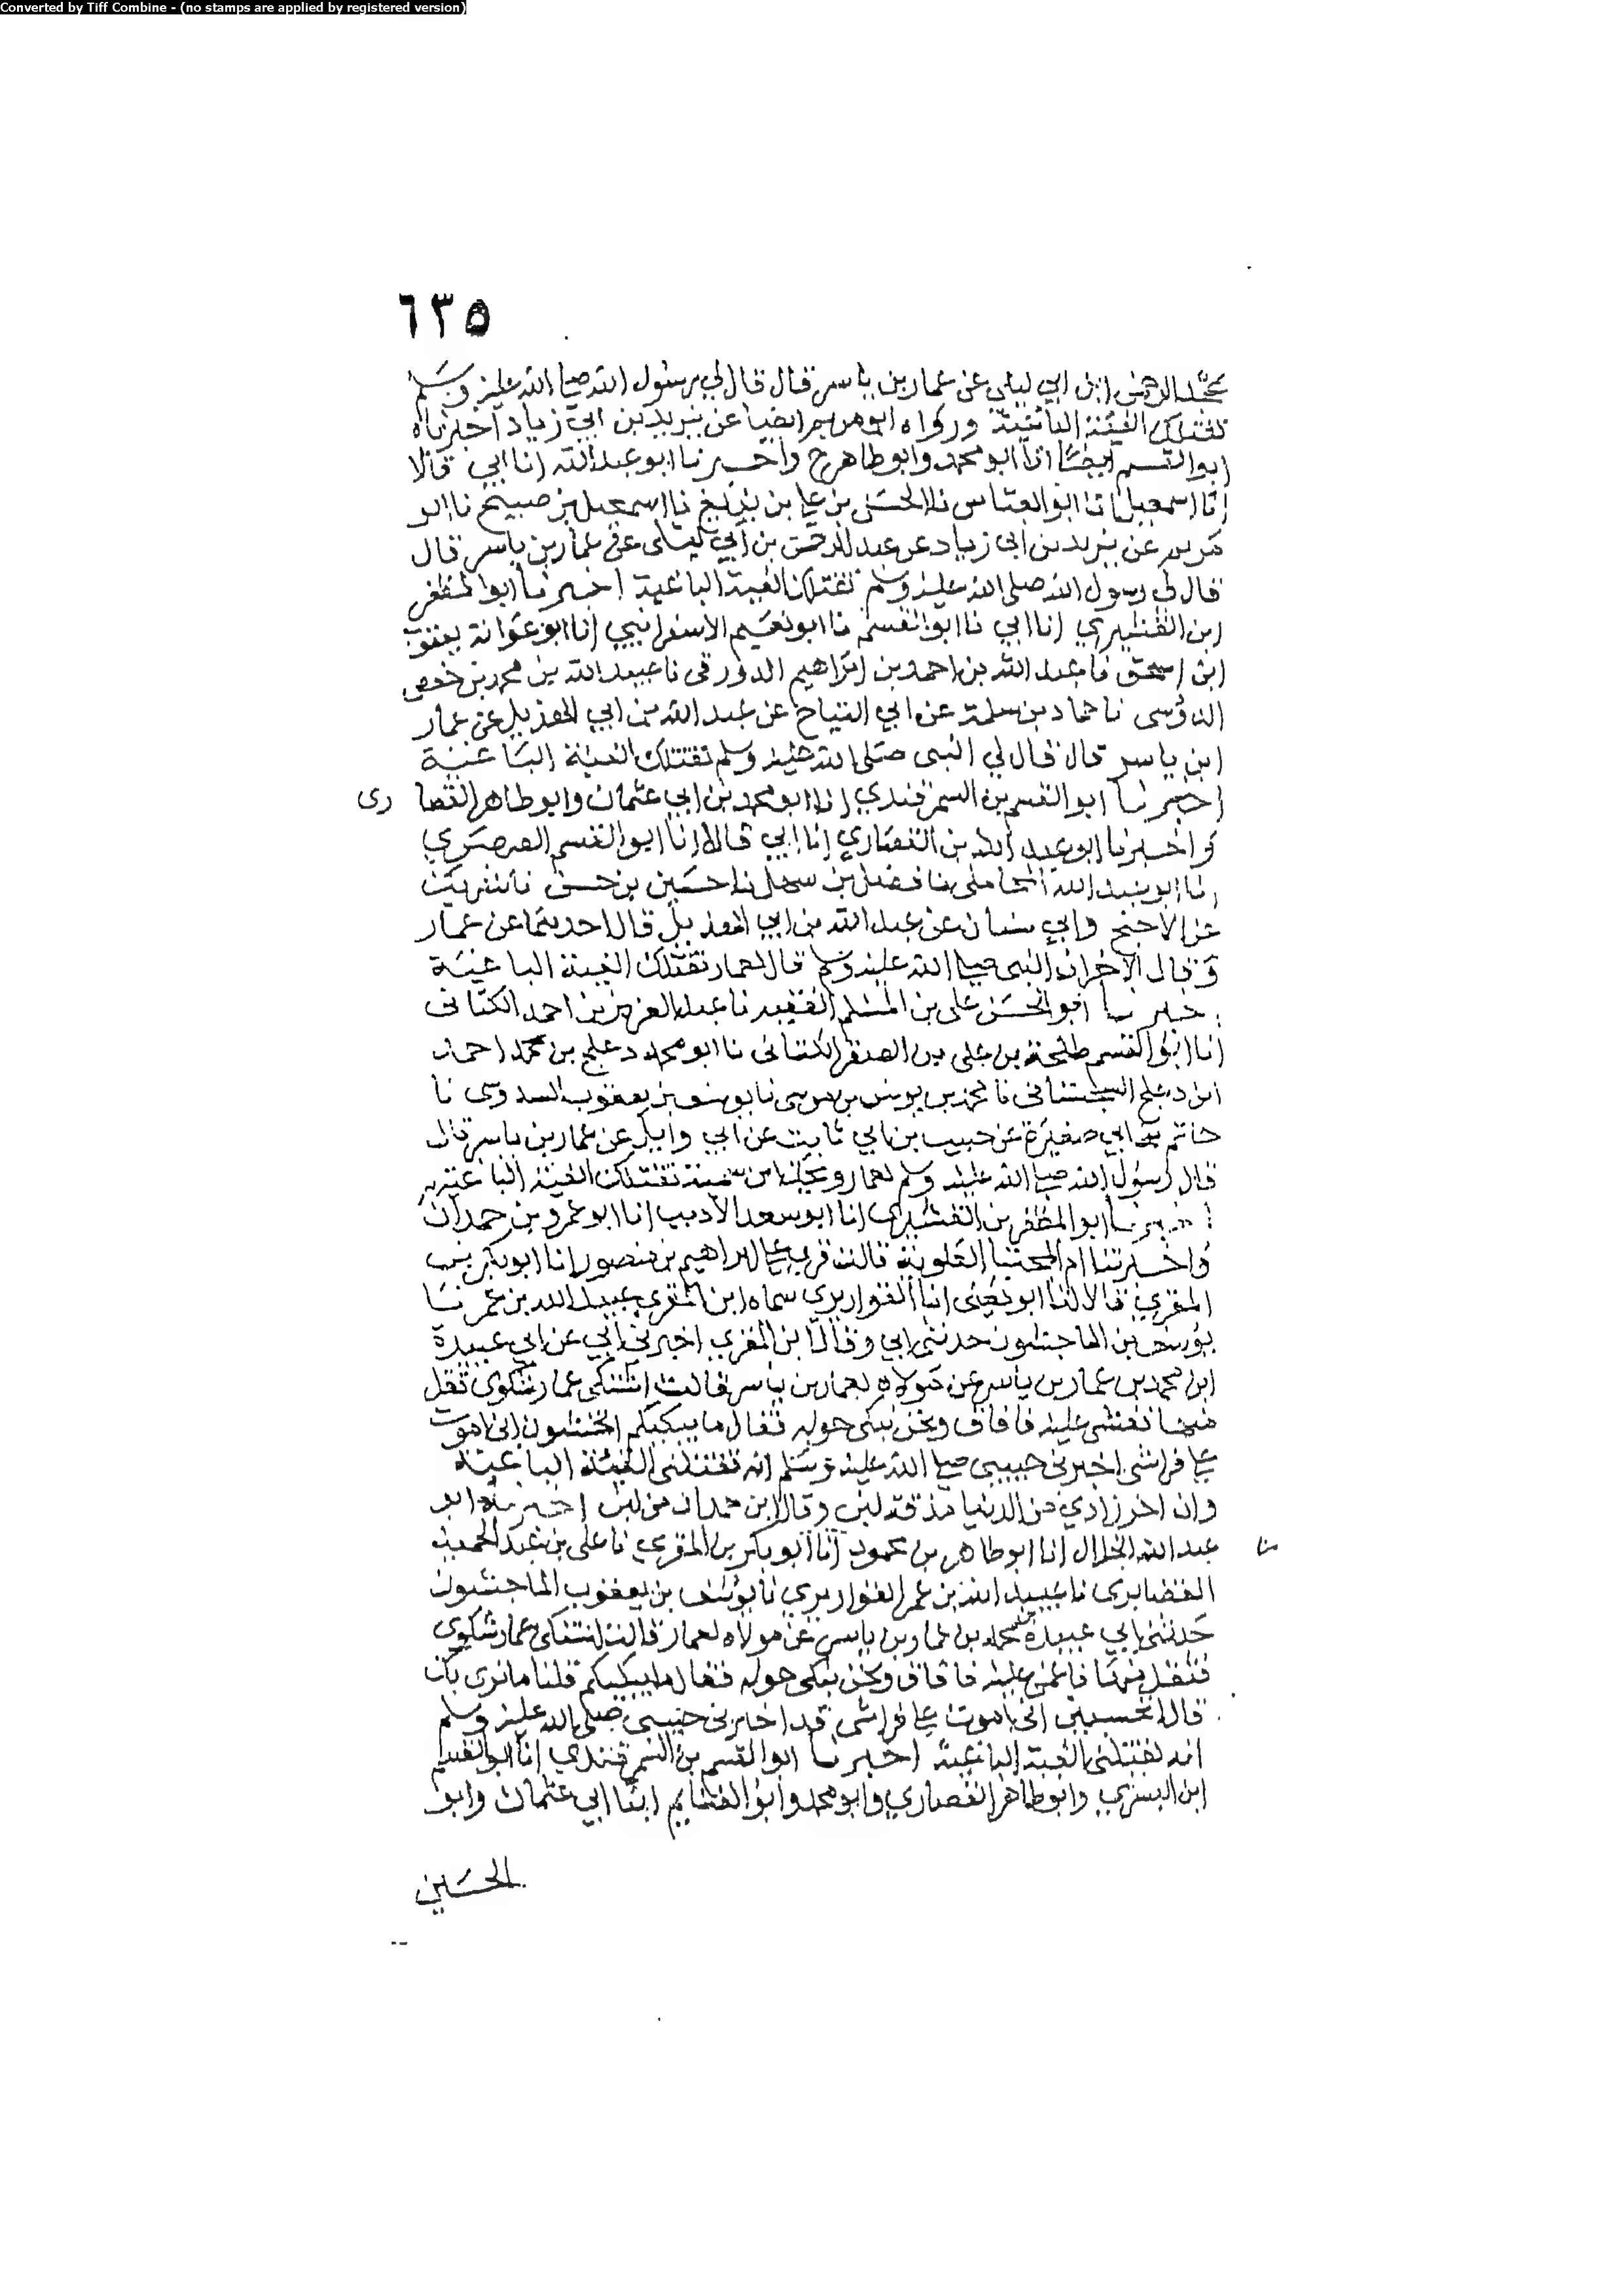 Converted by Tiff Combine - (no stamps are applied by registered version)
٦٣٥
عبد الرحمن ابن ابي ليلى عن عمار بن ياسر قال قال لي رسول الله صلى الله عليه وسلم
تقتلك الفئة الباغية ورواه ابو مريم ايضا عن يزيد بن ابي زياد اخبرناه
ابو القسم ايضا انا ابو محمد وابو طاهر ح واخبرنا ابو عبد الله انا ابي قالا
انا اسمعيل نا ابو العباس نا الحسن بن علي بن بزيع نا اسمعيل بن صبيح نا ابو
مريم عن يزيد بن ابى زياد عن عبد الرحمن بن ابي ليلى عن عمار بن ياسر قال
قال لى رسول الله صلى الله عليه وسلم تقتلك الفية الباغية اخبرنا ابو المظفر
ابن القشيري انا ابي نا ابو القسم نا ابو نعيم الاسفرائيني انا ابو عوانة يعقوب
ابن اسحق نا عبد الله بن احمد بن ابراهيم الدورقى نا عبيد الله بن محمد بن حفص
نا حماد بن سلمة عن ابي التياح عن عبد الله بن ابي الهذيل عن عمار
ابن ياسر قال قال لي النبى صلى الله عليه وسلم تقتلك الفية الباغية
اخبرنا ابو القسم بن السمرقندي انا ابو محمد بن ابي عثمان وابو طاهر القصا رى
واخبرنا ابو عبد الله بن القصاري انا ابي قالا انا ابو القسم الصرصري
نا ابو عبد الله المحاملى نا فضل بن سهل نا حسين بن حسن نا شريك
عن الاجلح وابي سنان عن عبد الله بن ابي الهذيل قال احدهما عن عمار
وقال الاخر ان النبى صلى الله عليه وسلم قال لعمار تقتلك الفية الباغية
اخبرنا ابو الحسن على بن المسلم الفقيه نا عبد العزيز بن احمد الكتانى
انا ابو القسم طلحة بن على بن الصقر الكتانى نا ابو محمد دعلج بن احمد
ابن دعلج السجستانى نا محمد بن يونس بن موسى نا يوسف بن يعقوب السدوسى نا
حاتم بن ابي صغيرة عن حبيب بن ابي ثابت عن ابي وايل عن عمار بن ياسر قال
قال رسول الله صلى الله عليه وسلم لعمار ويحك ابن سمية تقتلك الفية الباغية
اخبرنا ابو المظفر بن القشيرى انا ابو سعد الاديب انا ابو عمرو بن حمدان
واخبرتنا ام المجتبا العلوية قالت قرى على ابراهيم بن منصور انا ابو بكر بن
المقري قالا انا ابو يعلى انا القواريري سماه ابن المقرى عبيد الله بن عمر نا
يوسف بن الماجشون حدثنى ابي وقال ابن المقري اخبرنى ابي عن ابي عبيدة
ابن محمد بن عمار بن ياسر عن مولاة لعمار بن ياسر قالت اشتكى عمار شكوى ثقل
منها فغشى عليه فافاق ونحن نبكى حوله فقال ما يبكيكم اتخشون انى اموت
على فراشى اخبرنى حبيبى صلى الله عليه وسلم انه تقتلنى الفئة الباغية
وان اخر زادي من الدنيا مذقة لبن وقال ابن حمدان من لبن اخبرناه ابو
عبد الله الخلال انا ابو طاهر بن محمود انا ابو بكر بن المقري نا على بن عبد الحميد
الغضايرى نا عبيد الله بن عمر القواريري نا يوسف بن يعقوب الماجشون
حدثنى ابي عبيدة بن محمد بن عمار بن ياسر عن مولاة لعمار قالت اشتكى عمار شكوى
فثقل منها فاغمى عليه فافاق ونحن نبكى حوله فقال ما يبكيكم قلنا ما نرى بك
قال اتحسبين انى اموت على فراشى قد اخبرنى حبيبى صلى الله عليه وسلم
انه تقتلنى الفية الباغية اخبرنا ابو القسم بن السمرقندي انا ابو القسم
ابن البسري وابو طاهر القصاري وابو محمد وابو الغنايم ابنا ابي عثمان وابو
الحسين